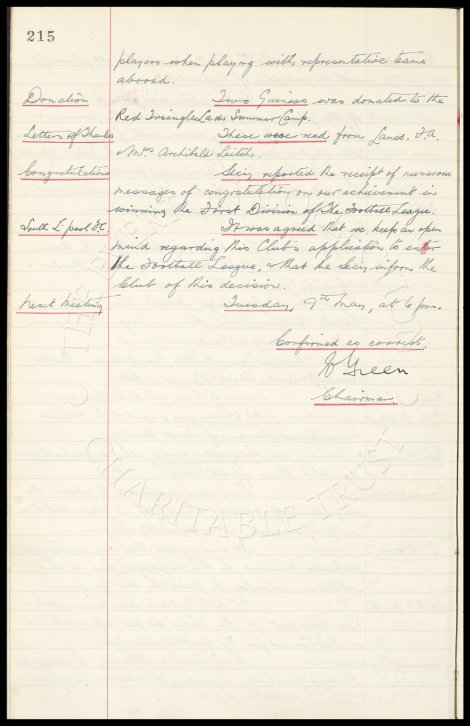 215
players when playing with representative teams
abroad.
Donation Two Guineas was donated to the
Red Triangle Lads Summer Camp.
Letters of Thanks These were read from Lancs. F.A.
Mrs Archibald Leitch.
Congratulations Secy reported the receipt of numerous
messages of congratulation on our achievement in
winning the First Division of The Football League.
South L'pool F.C. It was agreed that we keep an open
mind regarding this Clubs application to enter
the Football League, & that the Secy inform the
Club of this decision.
Next Meeting Tuesday, 9th May, at 6 pm.
Confirmed as correct.
Green
Chairman.
CHARITABLE TRUST